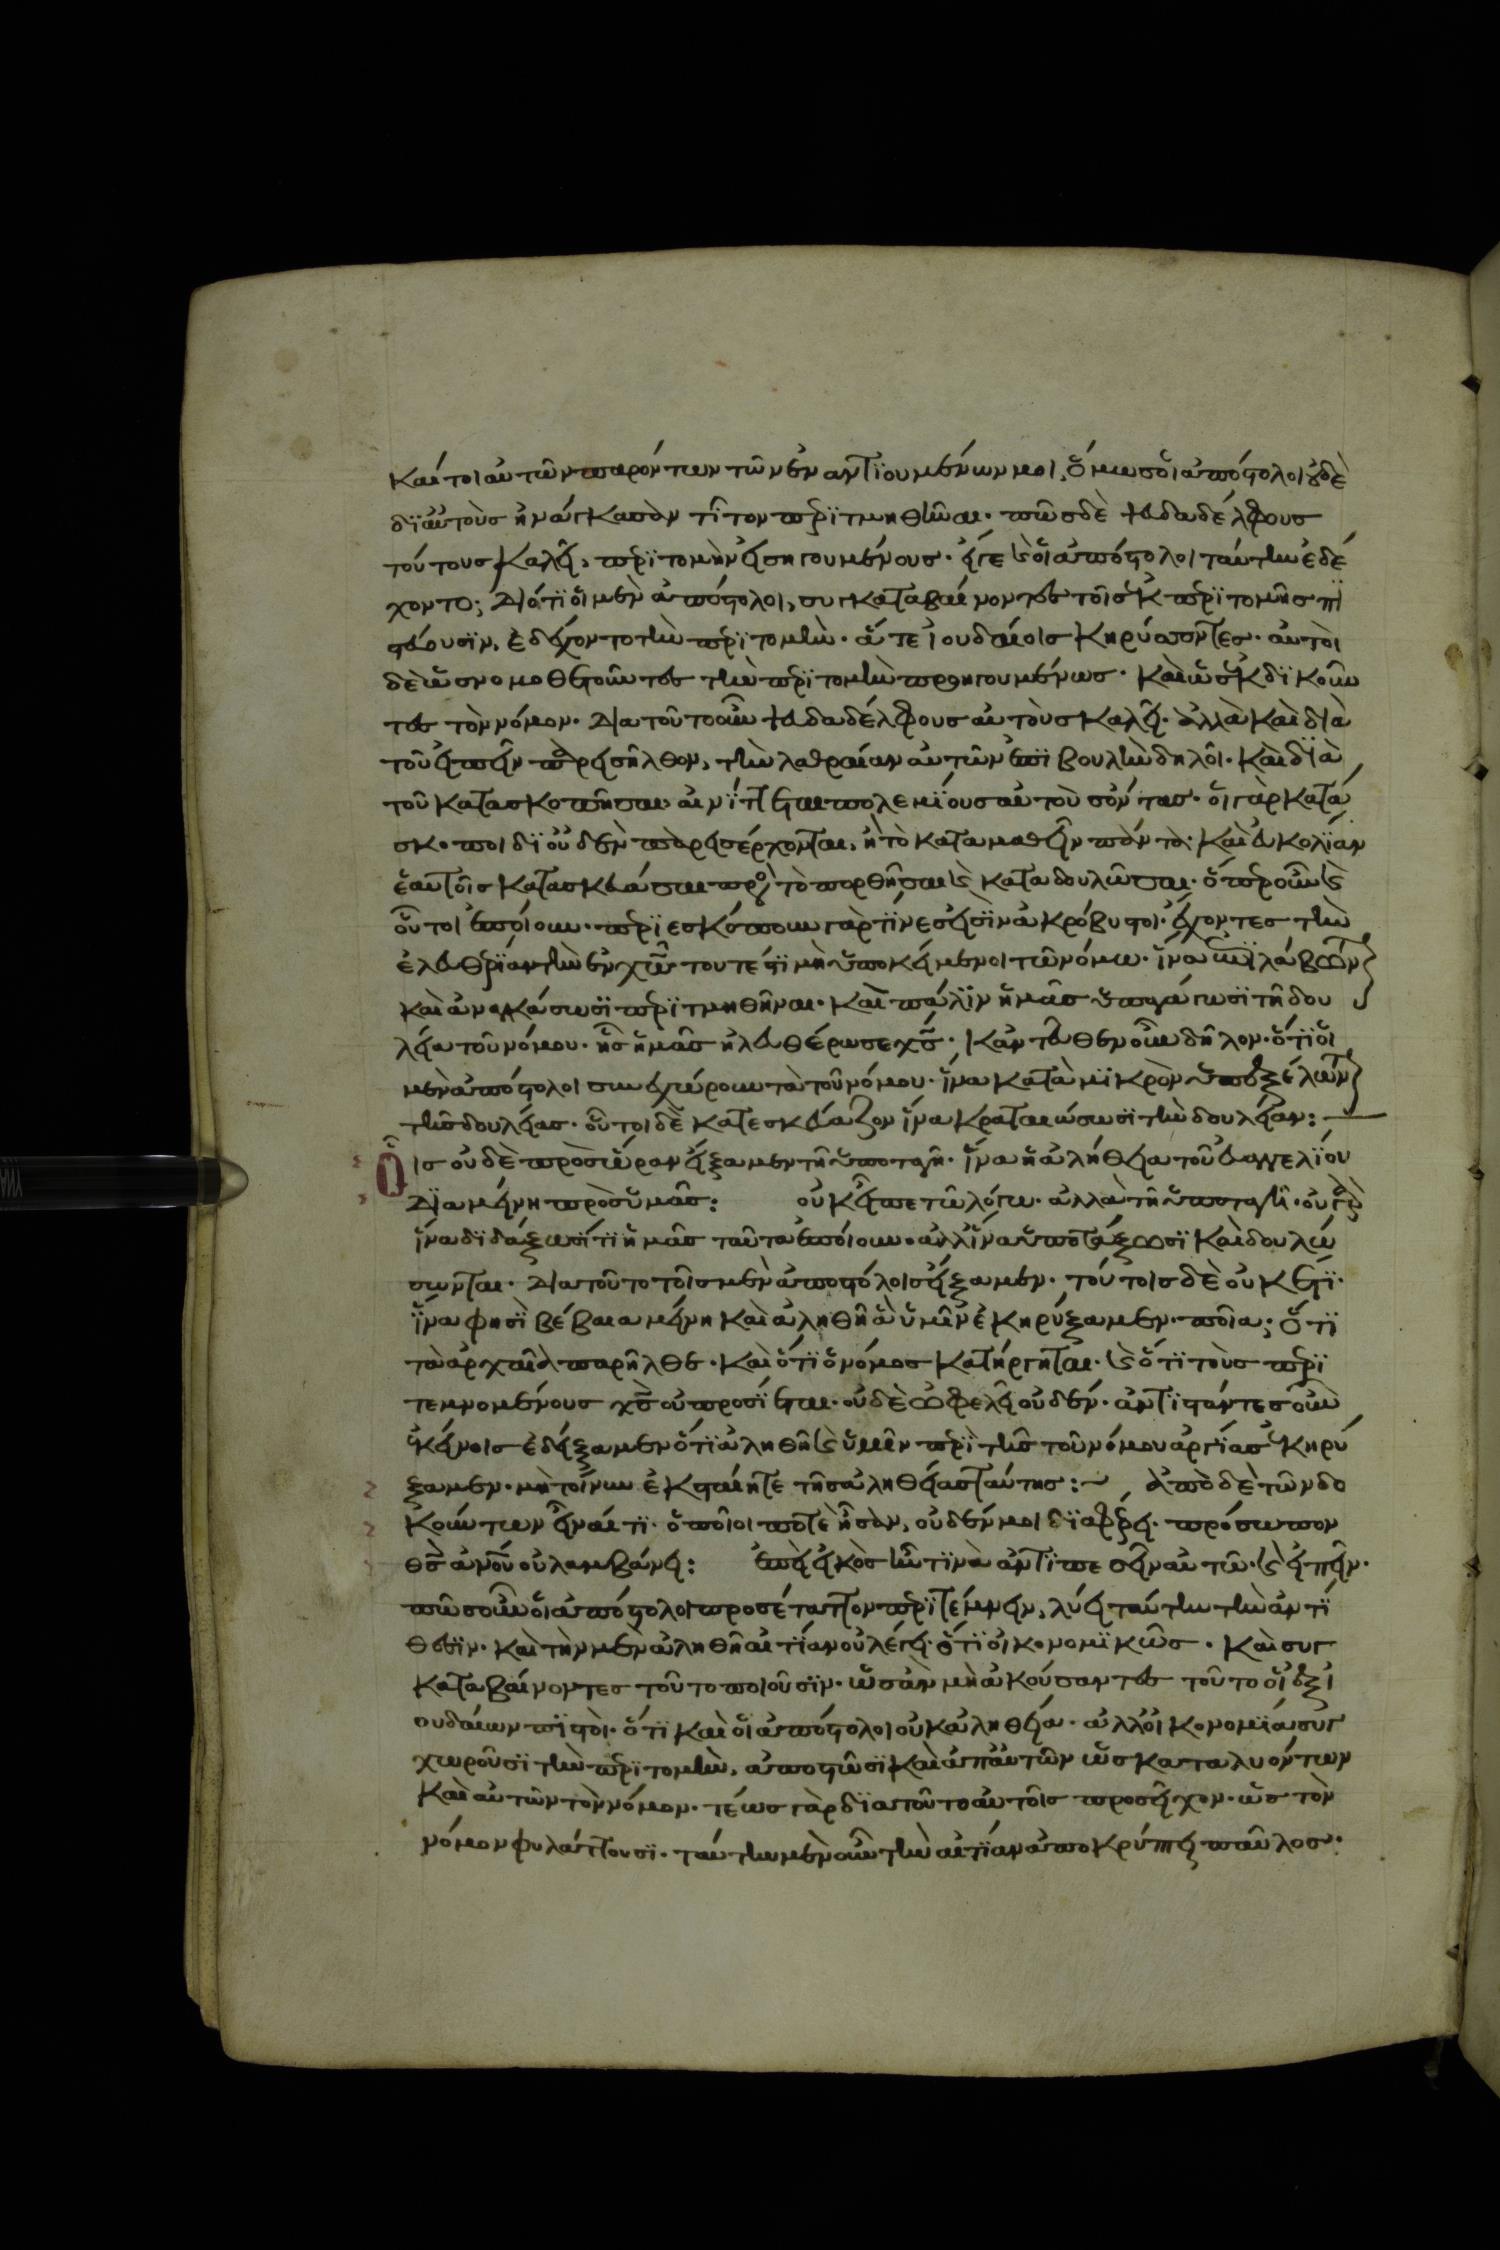 καίτοι αὐτῶν παρόντων τῶν ἐναντιουμένων μοι, ὅμως οἱ ἀπόστολοι οὐδὲ
δι' αὐτοὺς ἠνάγκασαν τίτον περιτμηθῆναι. πῶς δὲ ψευδαδέλφους
τούτους καλεῖ, περιτομὴν εἰσηγουμένους. εἴγε καὶ οἱ ἀπόστολοι ταύτην ἐδέ
χοντο; Διότι οἱ μὲν ἀπόστολοι, συγκαταβαίνοντες τοῖς ἐκ περιτομῆς πι
στεύουσιν, ἐδέχοντο τὴν περιτομὴν. ἅτε ἰουδαίοις κηρύσσοντες. αὐτοὶ
δὲ ὡς νομοθετοῦντες τὴν περιτομὴν προηγουμένως. καὶ ὡς ἐκδικοῦν
τες τὸν νόμον. Διατοῦτο οὖν ψευδαδέλφους αὐτοὺς καλεῖ. ἀλλὰ καὶ διὰ
τοῦ εἰπεῖν παρεισῆλθον, τὴν λαθραίαν αὐτῶν ἐπιβουλὴν δηλοῖ. καὶ διὰ
τοῦ κατασκοπῆσαι αἰνίττεται πολεμίους αὐτοὺς ὄντας. οἱ γὰρ κατά
σκοποι δι' οὐδὲν παρεισέρχονται, ἢ τὸ καταμαθεῖν πάντα. καὶ εὐκολίαν
ἑαυτοῖς κατασκευάσαι πρὸς τὸ πορθῆσαι καὶ καταδουλῶσαι. ὅπερ οὖν καὶ
οὗτοι ἐποίουν. περιεσκόπουν γὰρ τίνες εἰσὶν ἀκρόβυστοι. ἔχοντες τὴν
ἐλευθερίαν τὴν ἐν χῷ τουτέστι μὴ ὑποκείμενοι τῶ νόμω. ἵνα ἐπιλάβωνται
καὶ ἀναγκάσωσι περιτμηθῆναι. καὶ πάλιν ἡμᾶς ὑπαγάγωσι τῇ δου
λεία τοῦ νόμου. ἧς ἡμᾶς ἠλευθέρωσε χς. κἀντεῦθεν οὖν δῆλον. ὅτι οἱ
μὲν ἀπόστολοι συνεχώρουν τὰ τοῦ νόμου. ἵνα κατὰ μικρὸν ὑπεξέλωνται
τῆς δουλείας. οὗτοι δὲ κατεσκεύαζον ἵνα κραταιώσωσι τὴν δουλείαν:
Οἷς οὐδὲ πρὸς ὥραν εἴξαμεν τῇ ὑποταγῇ. ἵνα ἡ ἀλήθεια τοῦ εὐαγγελίου
Διαμείνη πρὸς ὑμᾶς: οὐκ εἶπε τῶ λόγω. ἀλλὰ τῇ ὑποταγῇ. οὐ γὰρ
ἵνα διδάξωσί τι ἡμᾶς ταῦτα ἐποίουν. ἀλλ' ἵνα ὑποτάξωσι καὶ δουλώ
σωνται. Διατοῦτο τοῖς μὲν ἀποστόλοις εἴξαμεν. τούτοις δὲ οὐκέτι.
ἵνα φησὶ βέβαια μείνη καὶ ἀληθῆ ἃ ὑμῖν ἐκηρύξαμεν. ποῖα; ὅτι
τὰ ἀρχαῖα παρῆλθε. καὶ ὅτι ὁ νόμος κατήργηται. καὶ ὅτι τοὺς περι
τεμνομένους χς οὐ προσίεται. οὐδὲ ὠφελεῖ οὐδέν. ἀντιστάντες οὖν
ἐκείνοις ἐδείξαμεν ὅτι ἀληθῆ καὶ ὑμῖν περὶ τῆς τοῦ νόμου ἀργίας ἐκηρύ
ξαμεν. μὴ τοίνυν ἐκσταίητε τῆς ἀληθείας ταύτης: Ἀπὸ δὲ τῶν δο
κούντων εἶναί τι. ὁποῖοι ποτὲ ἦσαν, οὐδέν μοι διαφέρει. πρόσωπον
θς ἀνου οὐ λαμβάνει: ἐπεὶ εἰκὸς ἦν τινὰ ἀντιπεσεῖν αὐτῶ. καὶ εἰπεῖν.
πῶς οὖν οἱ ἀπόστολοι προσέταττον περιτέμνειν, λύει ταύτην τὴν ἀντί
θεσιν. καὶ τὴν μὲν ἀληθῆ αἰτίαν οὐ λέγει. ὅτι οἰκονομικῶς. καὶ συγ
καταβαίνοντες τοῦτο ποιοῦσιν. ὡσὰν μὴ ἀκούσαντες τοῦτο οἱ ἐξ ἰ
ουδαίων πιστοὶ. ὅτι καὶ οἱ ἀπόστολοι οὐκ ἀληθεία. ἀλλ' οἰκονομία συγ
χωροῦσι τὴν περιτομὴν, ἀποστῶσι καὶ ἀπ' αὐτῶν ὡς καταλυόντων
καὶ αὐτῶν τὸν νόμον. τέως γὰρ διατοῦτο αὐτοῖς προσεῖχον. ὡς τὸν
νόμον φυλάττουσι. ταύτην μὲν οὖν τὴν αἰτίαν ἀποκρύπτει παῦλος.